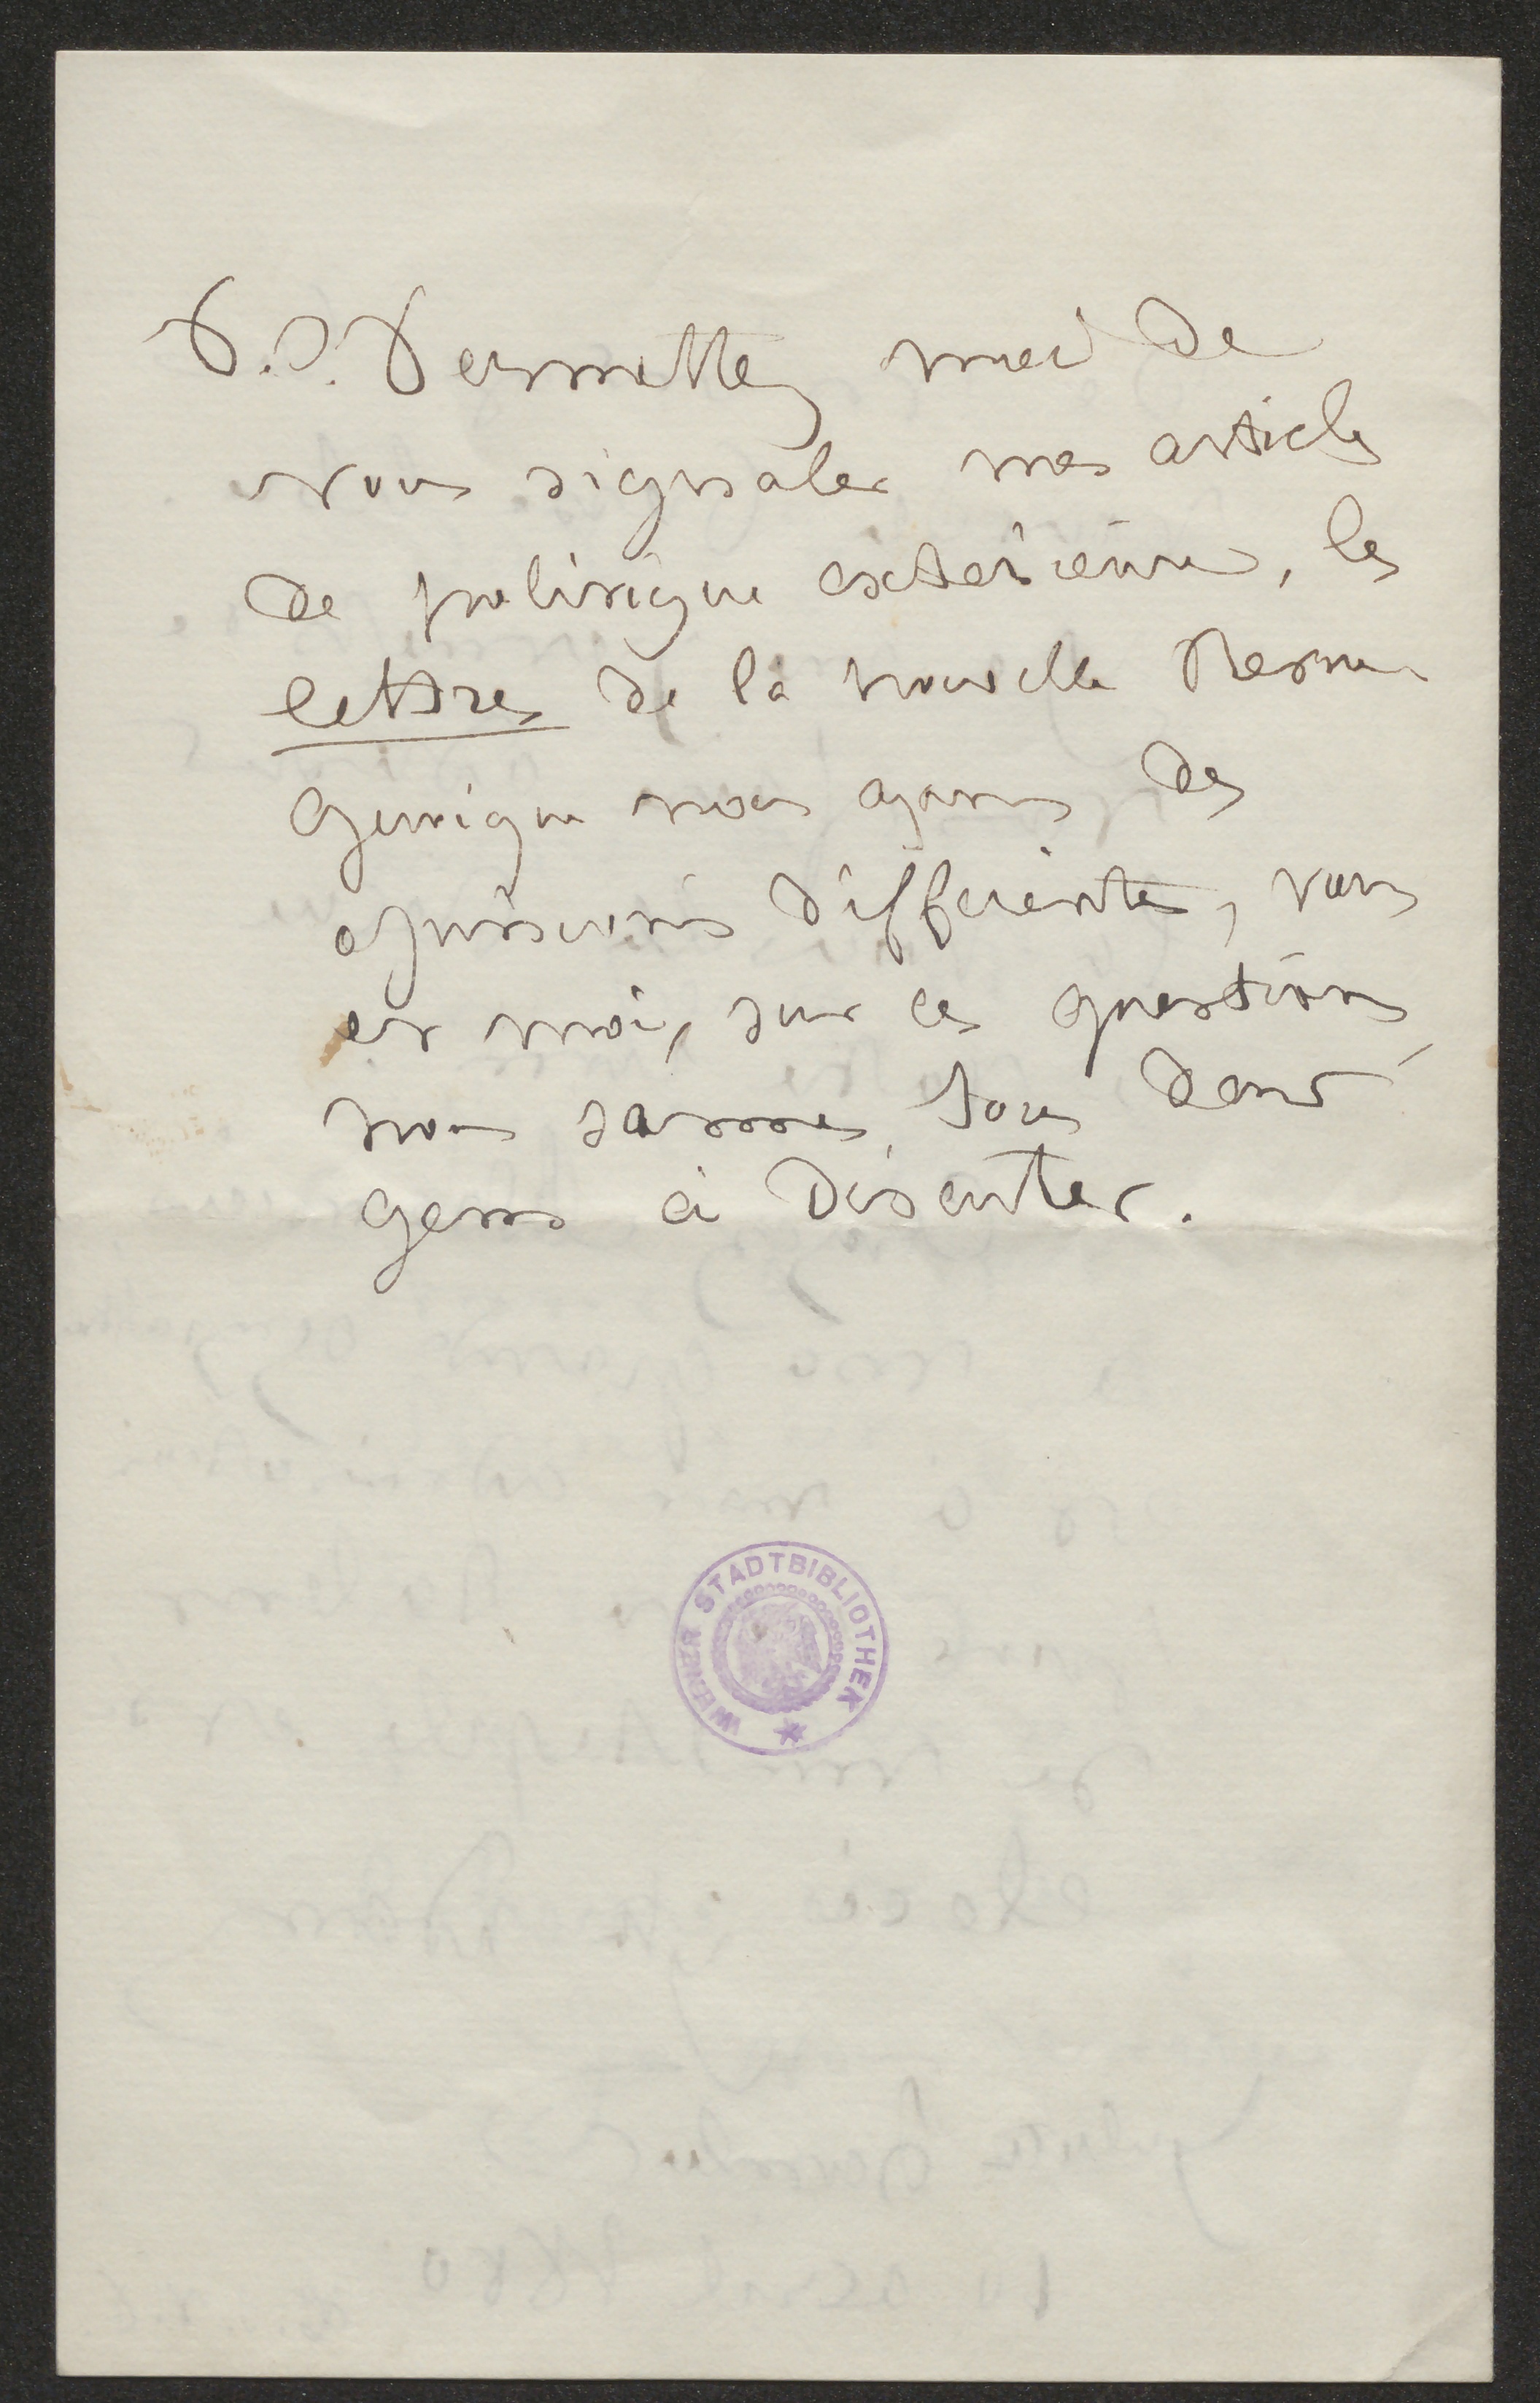 P.S. Permettez moi de
vous signaler mes articles
de politique extérieure, les
lettres de la nouvelle Revue
quoique nous ayons des
opinions différentes, vous
et moi, sur ces questions,
nous sommes tous deux
gens à discuter.
WIENER STADTBIBLIOTHEK